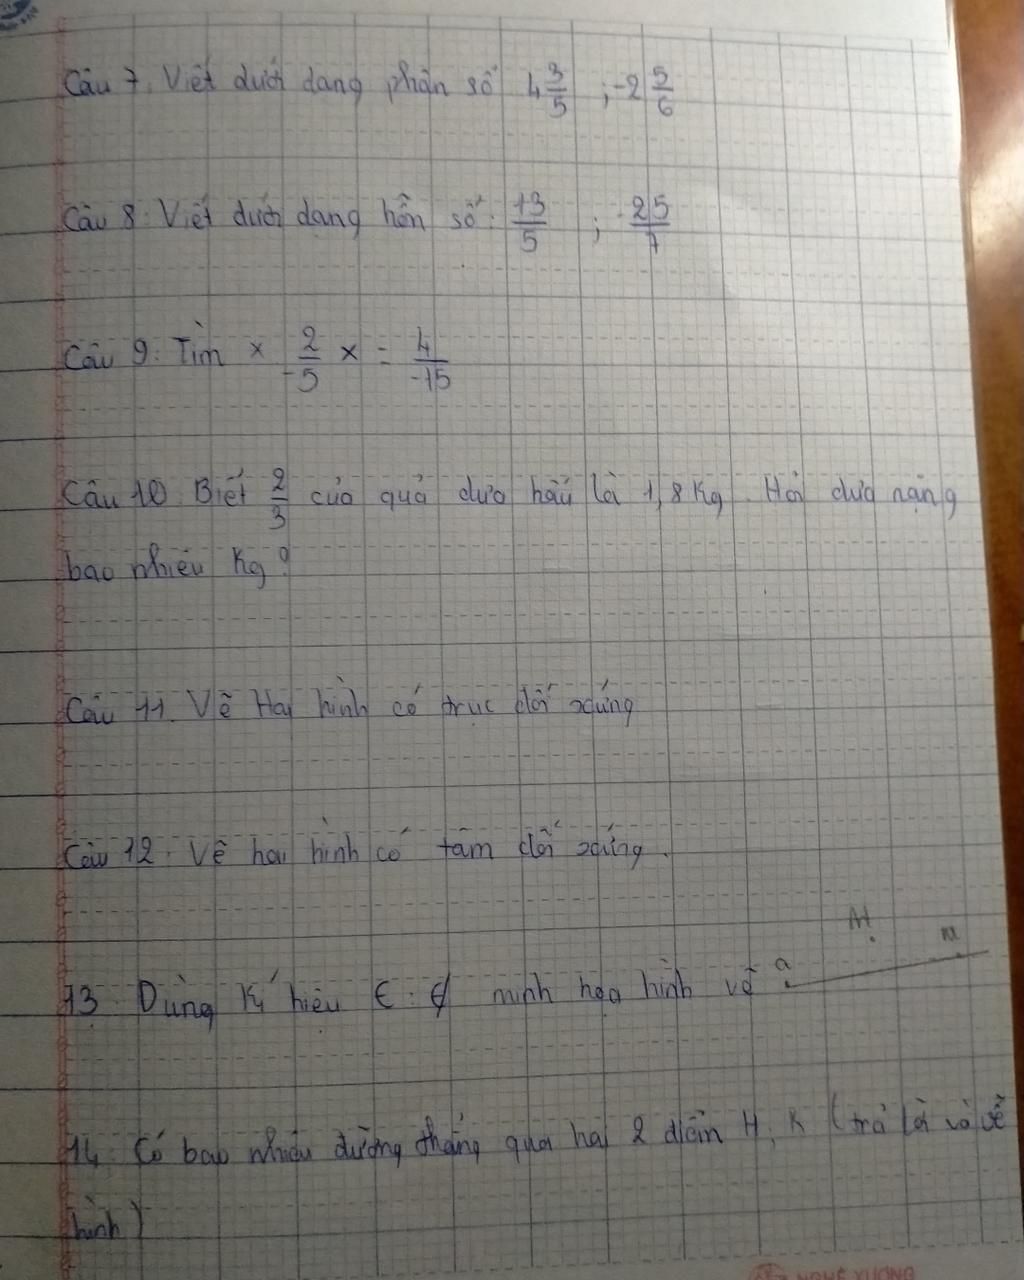 Câu 7. Viết dưới dạng phân số 4 3/5 ; -2 5/6
Câu 8: Viết dưới dạng hỗn số: 13/5 ; -25/7
Câu 9: Tìm x 2/-5 x = 4/-15
Câu 10: Biết 2/3 của quả dưa hấu là 1,8 Kg. Hỏi dưa nặng
bao nhiêu Kg?
Câu 11. Vẽ Hai hình có trục đối xứng
Câu 12: Vẽ hai hình có tâm đối xứng.
M
a
13. Dùng Ký hiệu ∈ ; ∉ minh họa hình vẽ
14. Có bao nhiêu đường thẳng qua hai 2 điểm H, K (trả lời và vẽ
hình)
NGHÊ XUÔNG